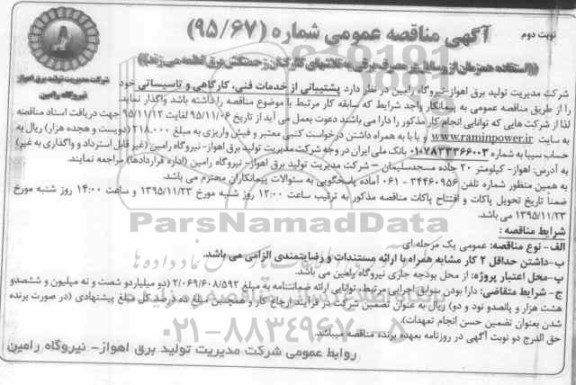 نوبت دوم
آگهی مناقصه عمومی شماره (۹۵/۶۷)
((استفاده همزمان از وسایل پر مصرف برقی به تلاشهای کارکنان زحمتکش برق لطمه می زند))
شرکت مدیریت تولید برق اهواز
نیروگاه رامین
شرکت مدیریت تولید برق اهواز-نیروگاه رامین در نظر دارد پشتیبانی از خدمات فنی، کارگاهی و تاسیساتی خود
را از طریق مناقصه عمومی به پیمانکار واجد شرایط که سابقه کار مرتبط با موضوع مناقصه را داشته باشد واگذار نماید.
لذا از شرکت هایی که توانایی انجام کار مذکور را دارا می باشند دعوت بعمل می آید از تاریخ ۹۵/۱۱/۰۶ لغایت ۹۵/۱۱/۱۲ جهت دریافت اسناد مناقصه
به سایت www.raminpower.ir و یا با به همراه داشتن درخواست کتبی معتبر و فیش واریزی به مبلغ ۲۱۸.۰۰۰ (دویست و هجده هزار) ریال به
حساب سیبا به شماره ۰۱۰۷۸۳۳۳۶۶۰۰۳ بانک ملی ایران در وجه شرکت مدیریت تولید برق اهواز-نیروگاه رامین (غیر قابل استرداد و واگذاری به غیر)
به آدرس: اهواز- کیلومتر ۲۰ جاده مسجدسلیمان – شرکت مدیریت تولید برق اهواز- نیروگاه رامین (اداره قراردادها) مراجعه نمایند.
به همین منظور شماره تلفن ۳۴۴۶۰۹۵۶ - ۰۶۱ آماده پاسخگویی به سئوالات پیمانکاران محترم می باشد.
ضمناً تاریخ تحویل پاکات و افتتاح پاکات مناقصه مذکور به ترتیب ساعت ۱۲:۰۰ روز شنبه مورخ ۱۳۹۵/۱۱/۲۳ و ساعت ۱۴:۰۰ روز شنبه مورخ
۱۳۹۵/۱۱/۲۳ می باشد.
شرایط مناقصه :
الف - نوع مناقصه: عمومی یک مرحله ای
ب-داشتن حداقل ۲ کار مشابه همراه با ارائه مستندات و رضایتمندی الزامی می باشد.
پ-محل اعتبار پروژه: از محل بودجه جاری نیروگاه رامین می باشد.
ج- شرایط متقاضی: دارا بودن سوابق اجرایی مرتبط، توانایی ارائه ضمانتنامه به مبلغ ۲/۰۶۹/۶۰۸/۵۹۲ (دو میلیارد و شصت و نه میلیون و ششصدو
هشت هزار و پانصدو نود و دو) ریال به عنوان تضمین شرکت در فرآیند ارجاع کار و همچنین مبلغ ده درصد کل مبلغ پیشنهادی (در صورت برنده
شدن بعنوان تضمین حسن انجام تعهدات)
حق الدرج دو نوبت آگهی در روزنامه بعهده برنده مناقصه میباشد.
روابط عمومی شرکت مدیریت تولید برق اهواز- نیروگاه رامین
ParsNamadData
۰۲۱-۸۸۳۴۹۶۷۰-۵